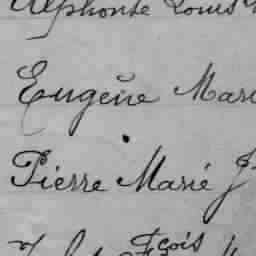 Alphonse Louis
Eugène Mari
Pierre Marie J
fçois